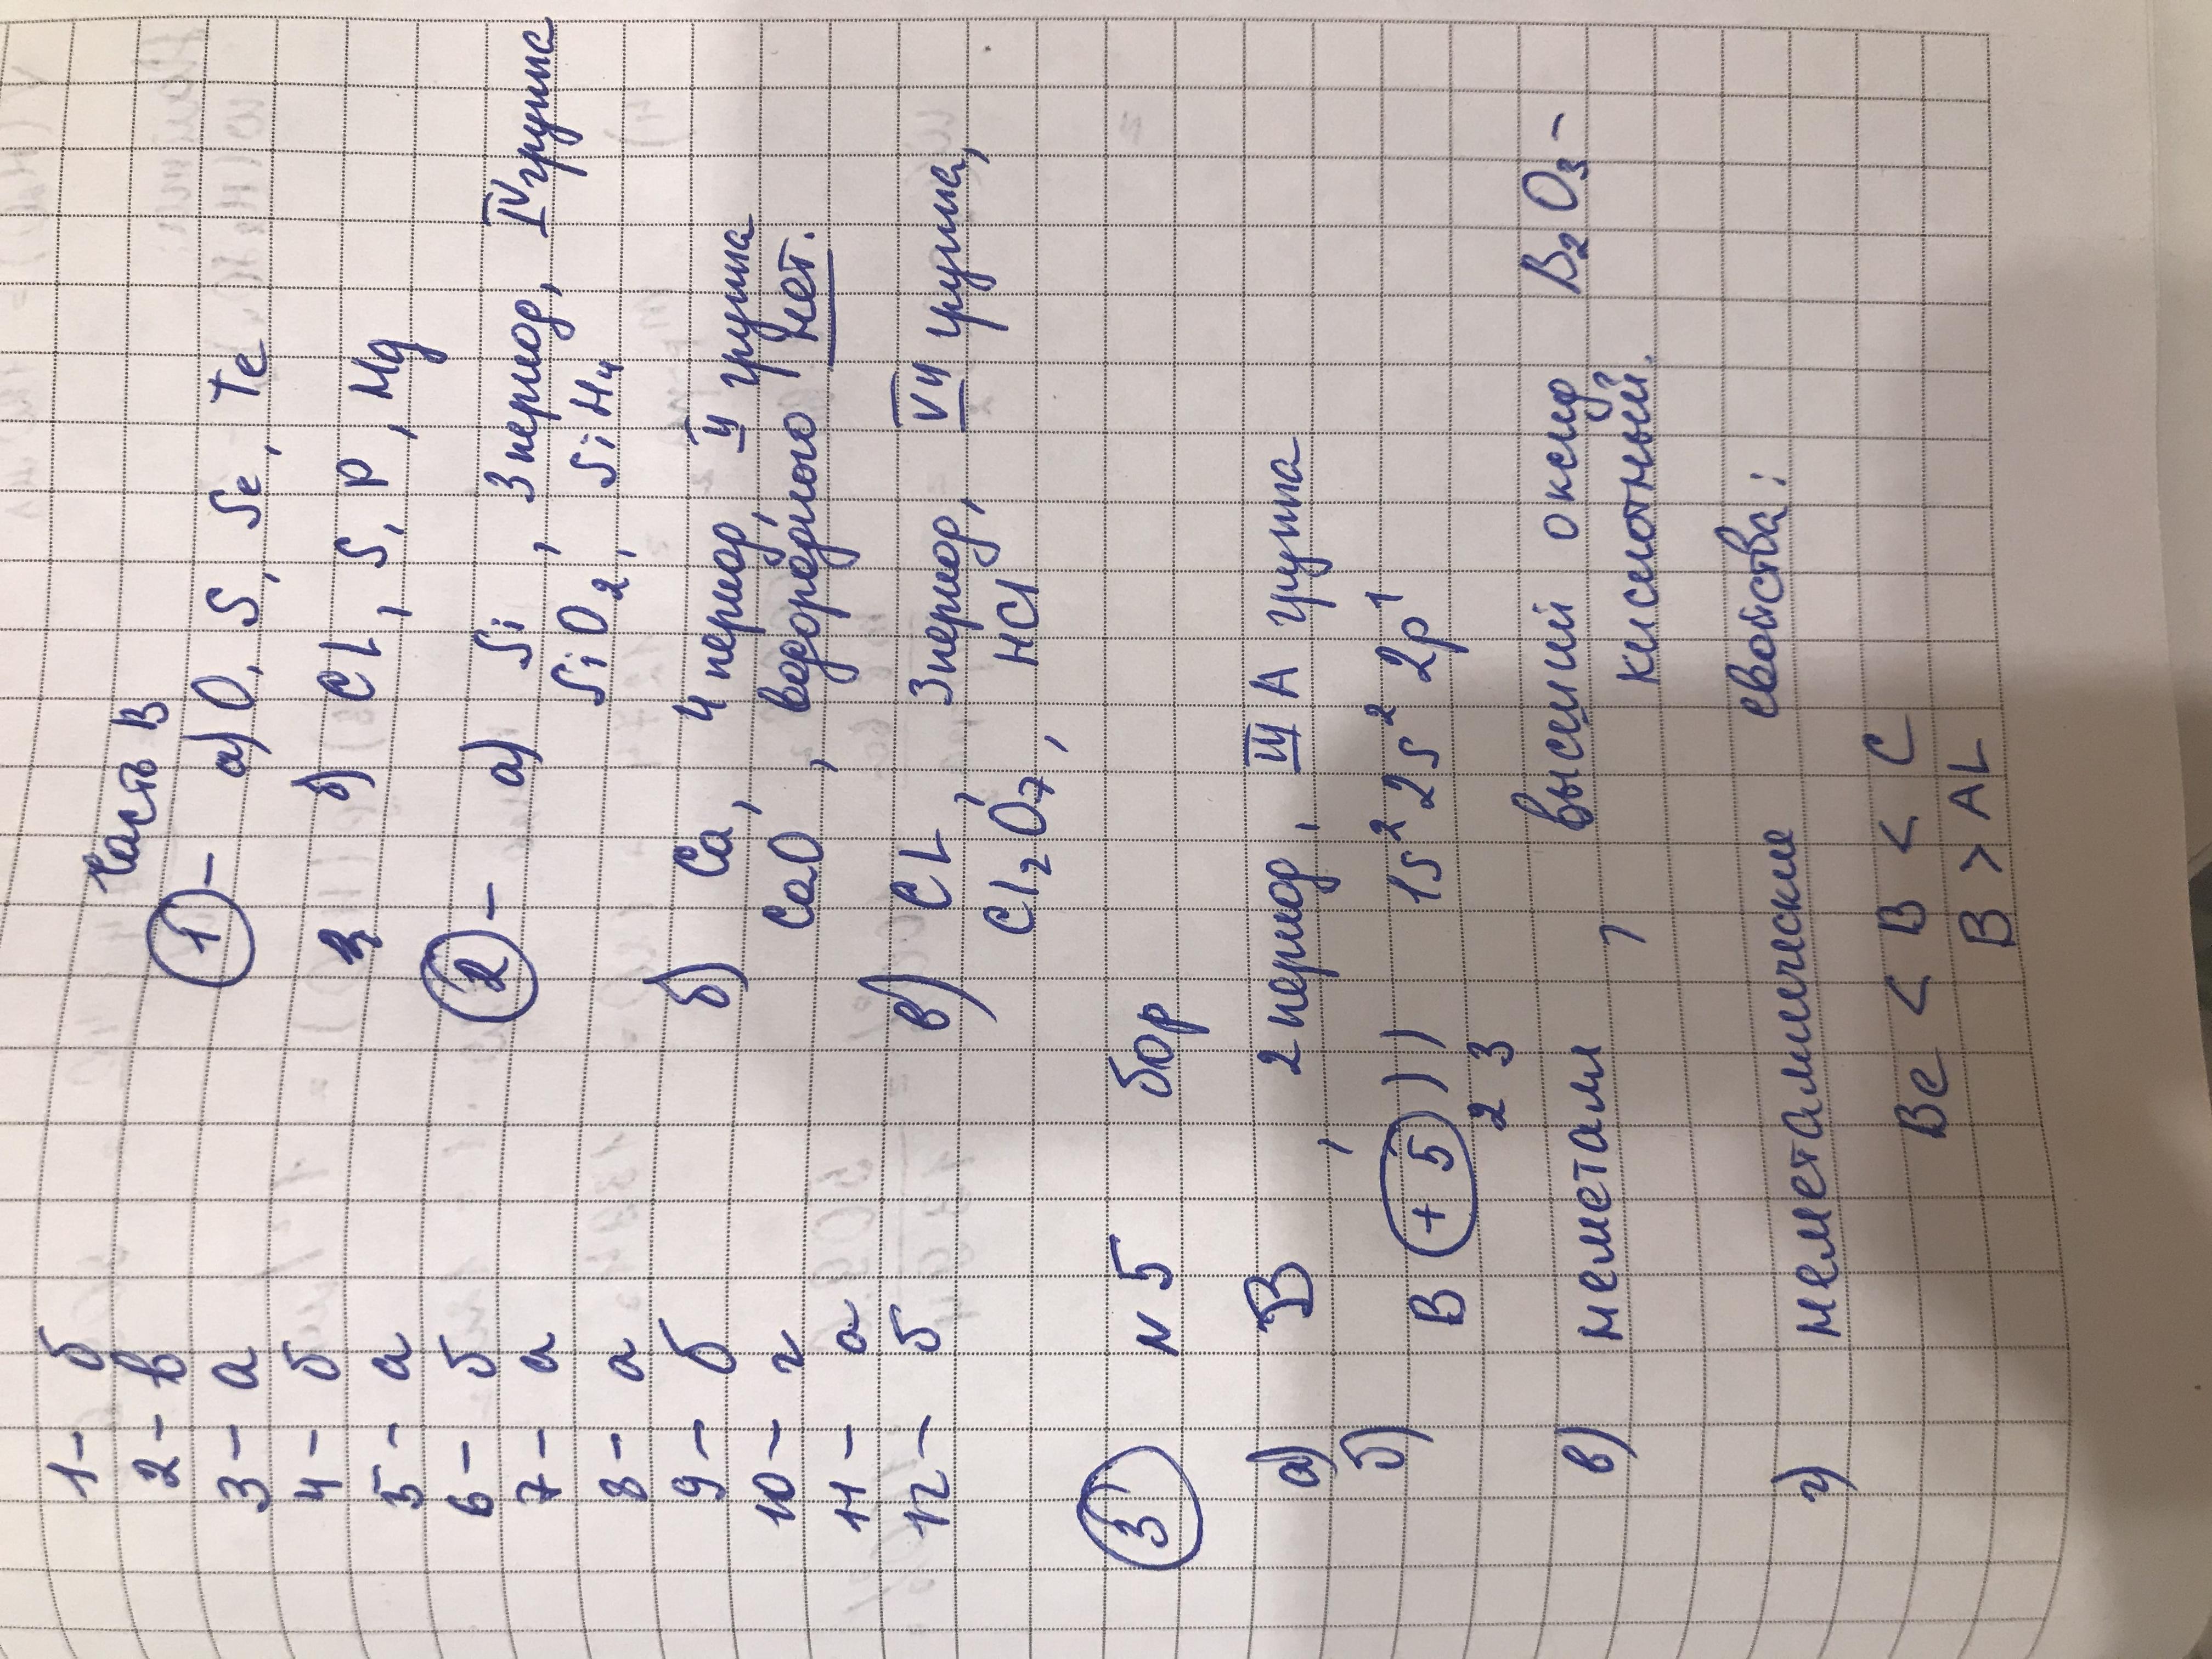 1 - б
2 - в
3 - а
4 - б
5 - а
6 - б
7 - а
8 - а
9 - б
10 - г
11 - а
12 - б
Часть В
1 - а) O, S, Se, Te
б) CL, S, P, Mg
2 - а) Si, 3 период, IV группа
SiO2, SiH4
б) Ca, 4 период, II группа
CaO, водородного нет.
в) CL, 3 период, VII группа,
Cl2O7, HCl
3 N 5 бор
а) B, 2 период, III А группа
б) B +5 ) ) 1s² 2s² 2p¹
2 3
в) неметалл, высший оксид B2O3 -
кислотный.
г) неметаллические свойства:
Be < B < C
B > AL